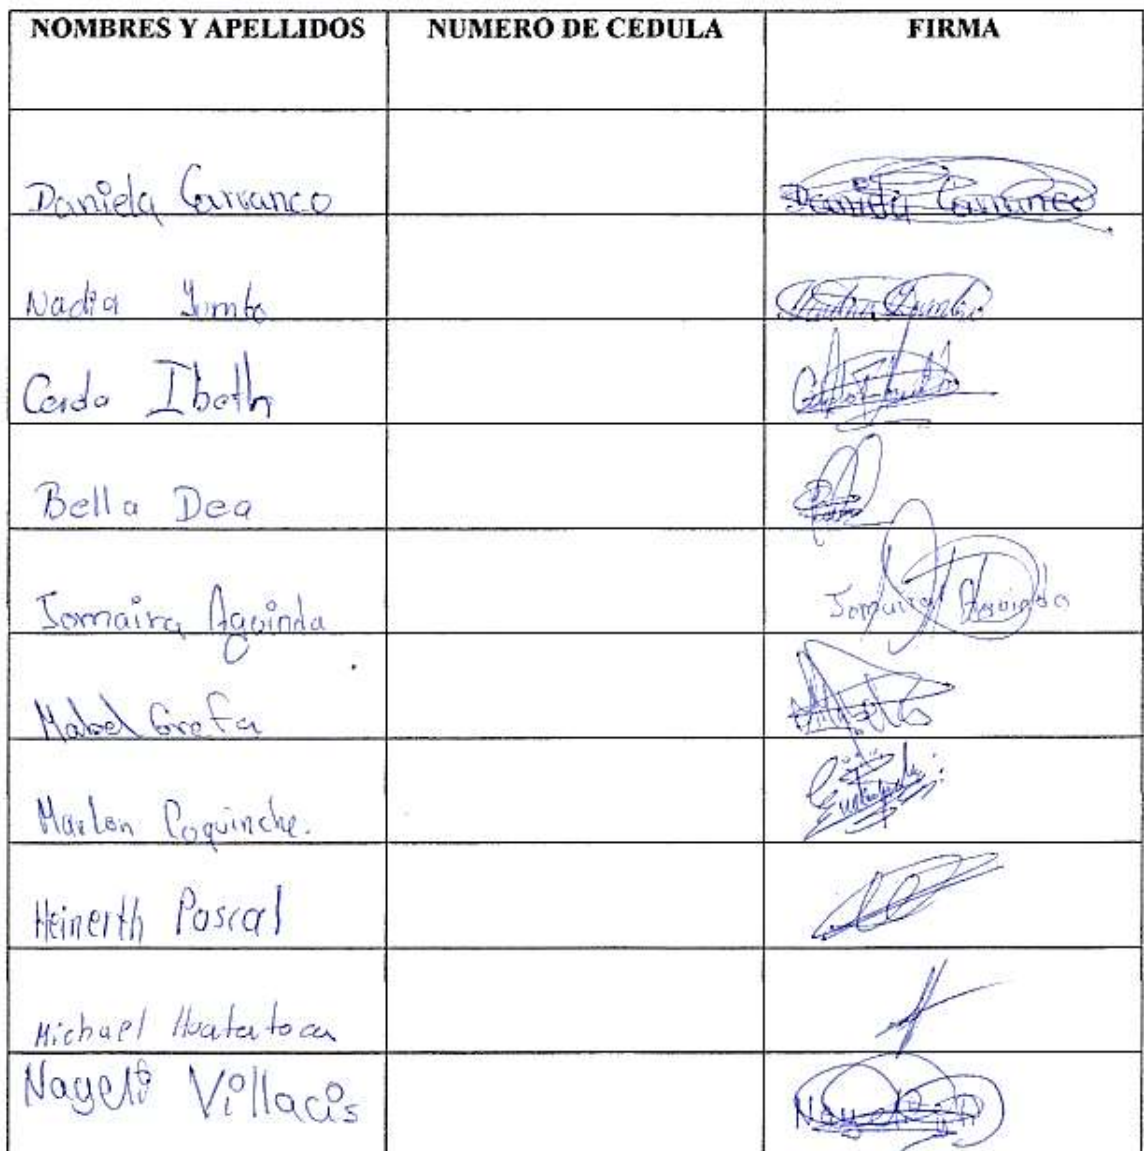 NOMBRES Y APELLIDOS NUMERO DE CEDULA FIRMA
Daniela Carranco Daniela Carranco
Nadia Yumbo
Cerda Ibeth
Bella Dea
Jomaira Aguinda Jomaira Aguinda
Mabel Grefa
Marlon Coquinche.
Heinerth Pascal
Michael Huatatoca
Nageli Villacis